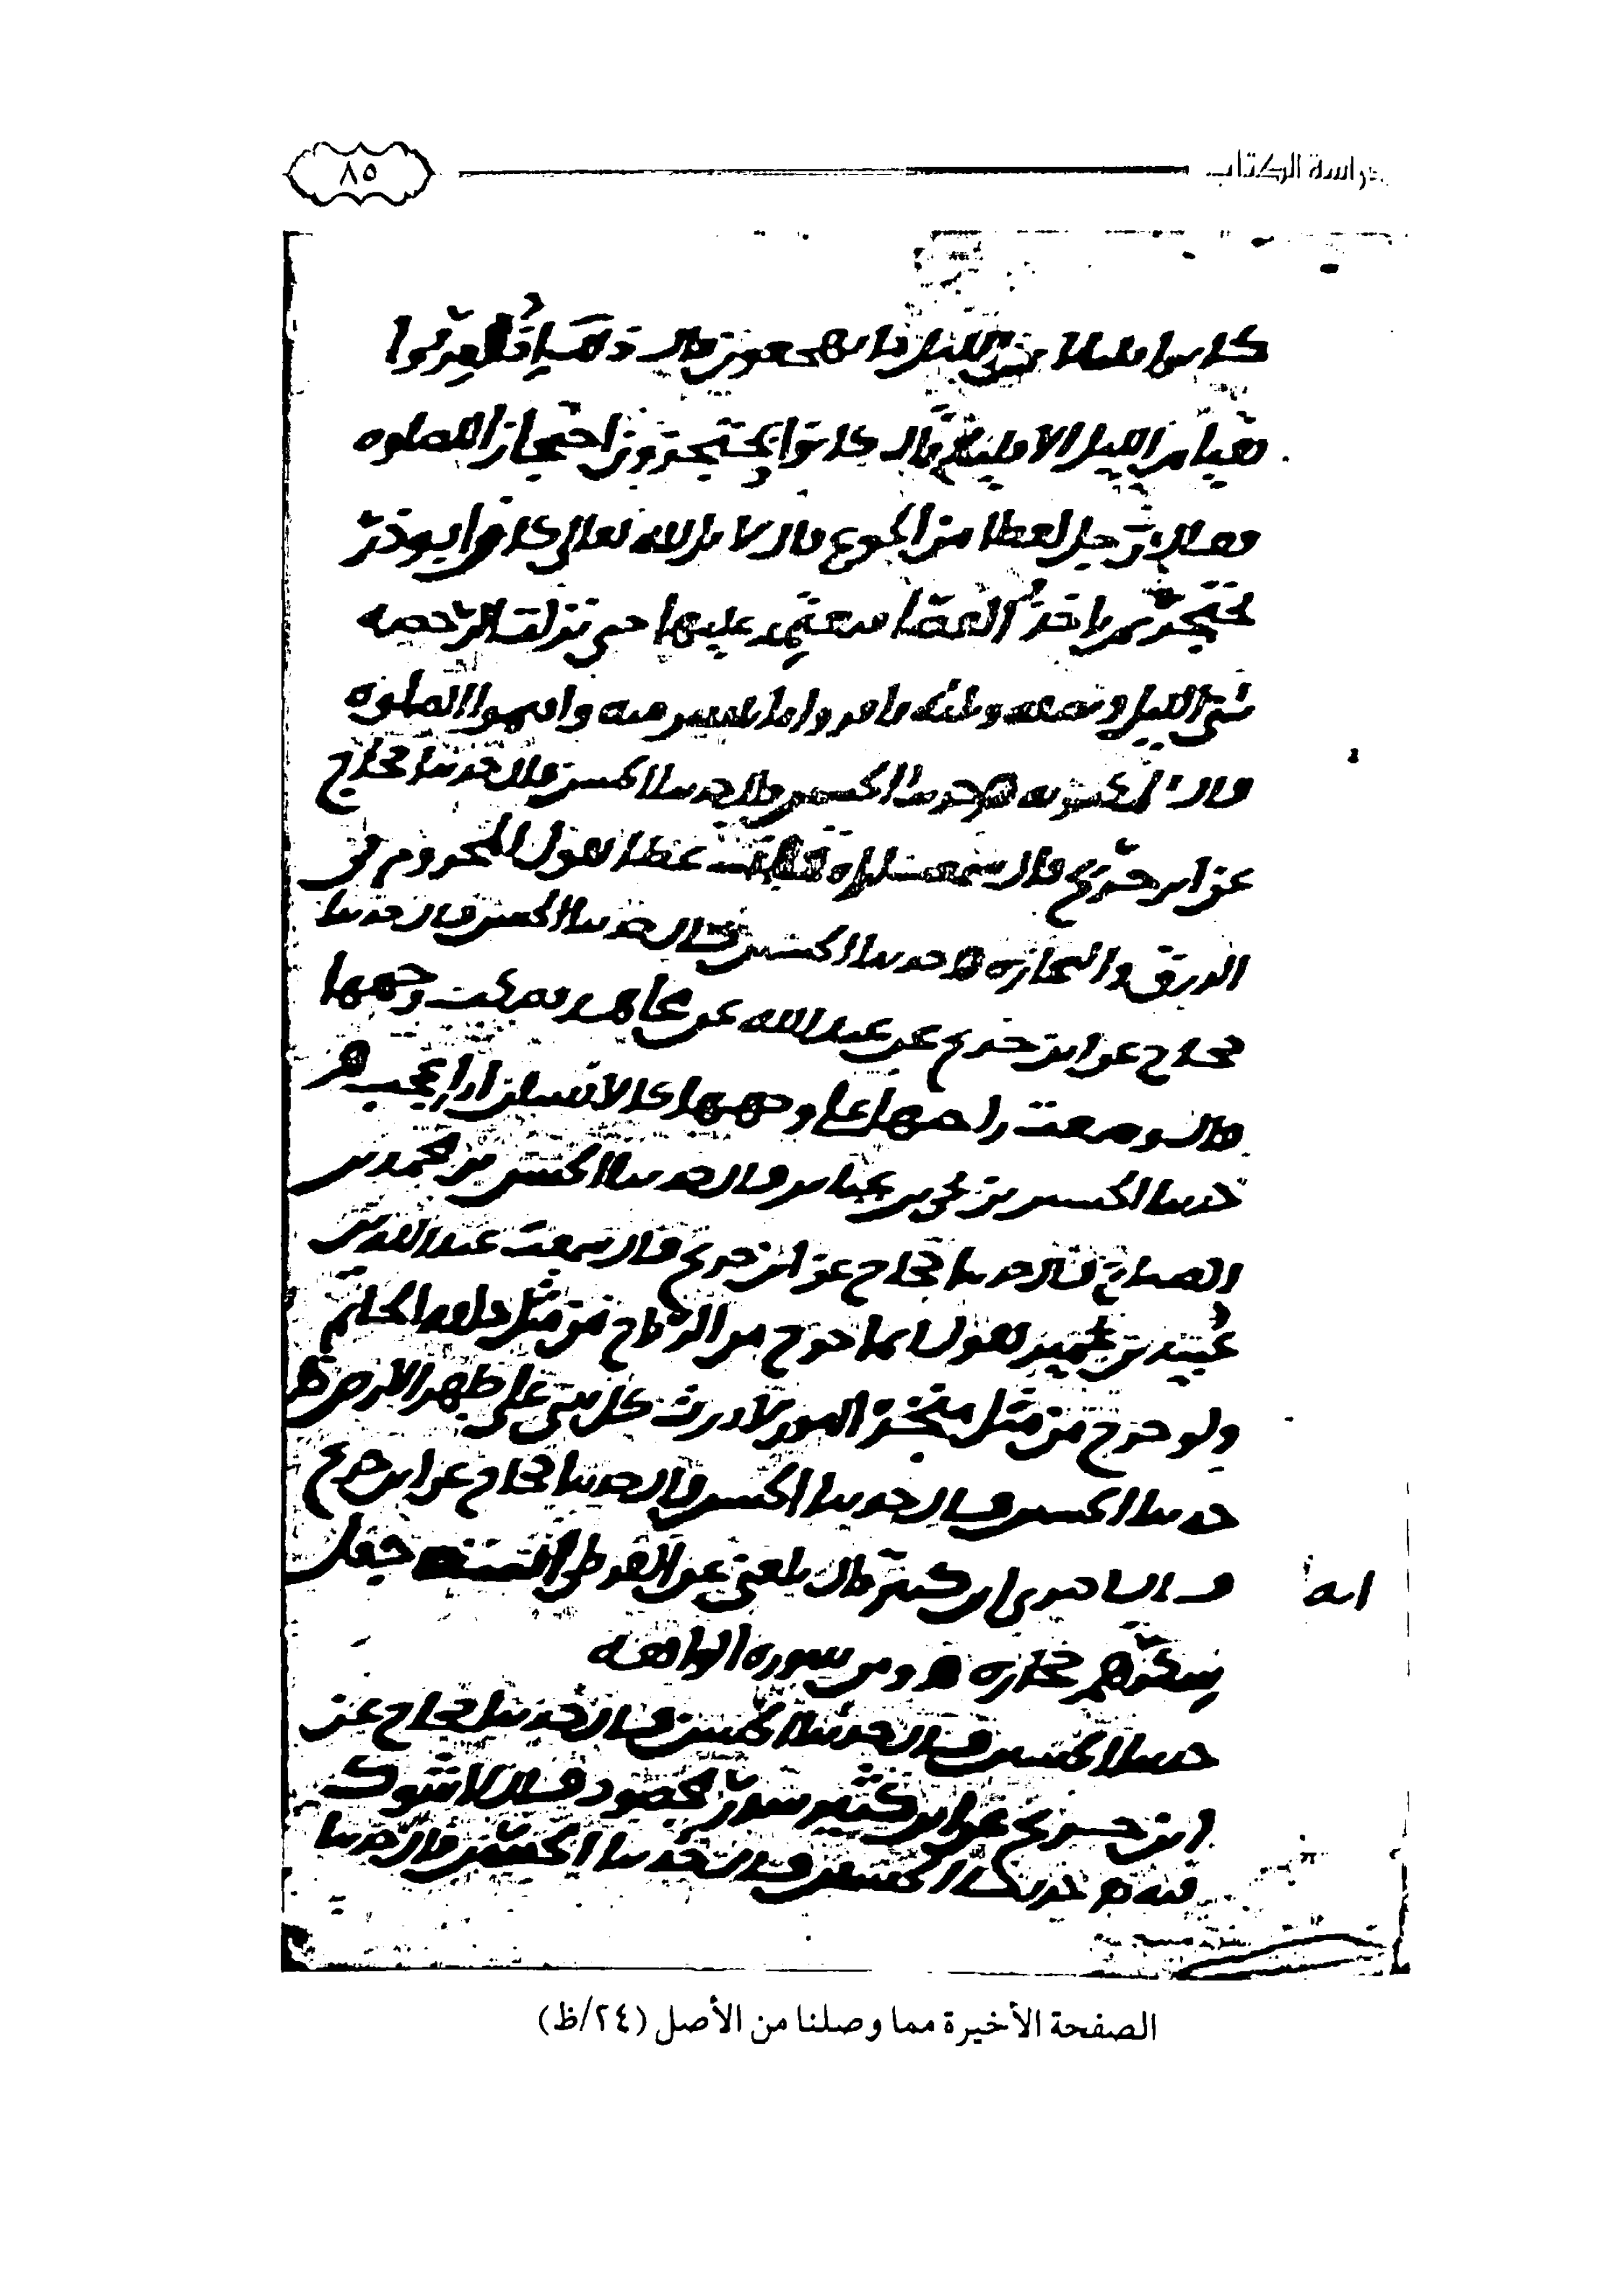 دراسة الكتاب
٨٥
كانوا قليلا من الليل ما يهجعون قال ذلك إذ أمروا
بقيام الليل الا قليلا قال كانوا يحتجزون احتجازا للصلوه
فقال رجل لعطا من الجوع قال لا بل لله تعالى كان ابو ذر
يحتجز ثم ياخذ العصا فيعتمد عليها حتى نزلت الرخصه
ثلثي الليل ونصفه وثلثه فاقروا ما تيسر منه واقيموا الصلوه
قال المكتوبه حدثنا الحسين قال حدثنا الحسن قال حدثنا حجاج
عن ابن جريج قال سمعت عطا يقول المحروم في
الرزق والتجاره حدثنا الحسين قال حدثنا الحسن قال حدثنا
حجاج عن ابن جريج عن عبد الله عن مجاهد فصكت وجهها
قال وضعت راحتها على وجهها كالانسان اذا عجب
حدثنا الحسين بن يحيى بن عياش قال حدثنا الحسن بن محمد بن
الصباح قال حدثنا حجاج عن ابن جريج قال سمعت عبد الله بن
عبيد بن عمير يقول انما خرج من الرياح من مثل حلقه الخاتم
ولو خرج من مثل منخر الثور لاذرت كل شي على ظهر الارض
حدثنا الحسين قال حدثنا الحسن قال حدثنا حجاج عن ابن جريج
قال اخبرني ابن كثير قال بلغني عن القرظي جعل
انه
سكرهم حجاره ومن سوره الواقعه
حدثنا الحسين قال حدثنا الحسن قال حدثنا حجاج عن
ابن جريج عن ابن كثير سدر مخضود قال لا شوك
فيه حدثنا الحسين قال حدثنا الحسن قال حدثنا
الصفحة الأخيرة مما وصلنا من الأصل (٢٤/ظ)